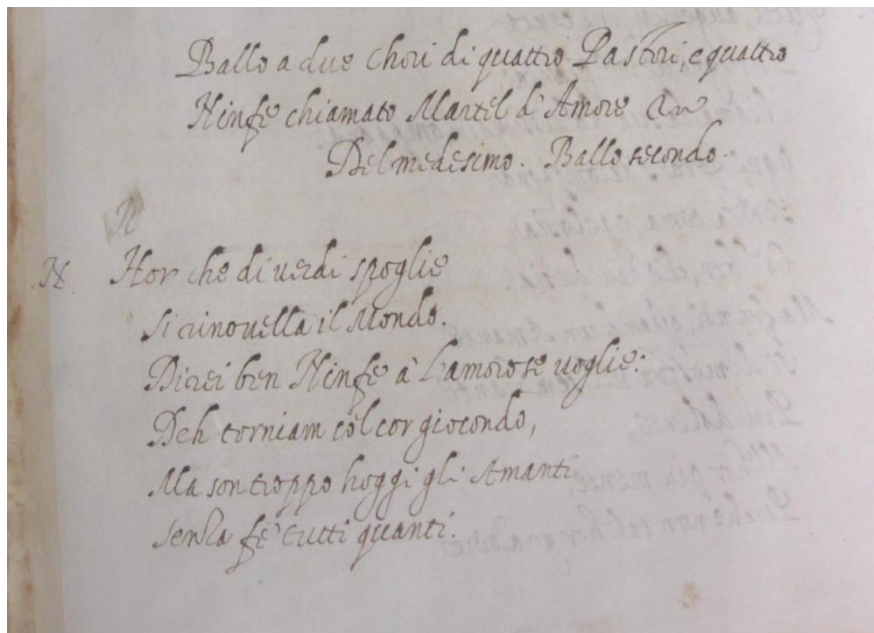 Ballo a due Chori di quattro Pastori, e quattro
Ninfe chiamato Martel d'Amore
Del medesimo. Ballo secondo.
N
N. Hor che di uerdi spoglie
Si rinouella il Mondo.
Direi ben Ninfe à l'amorose uoglie:
Deh torniam col cor giocondo,
Ma son troppo hoggi gli Amanti
Senza fè tutti quanti.